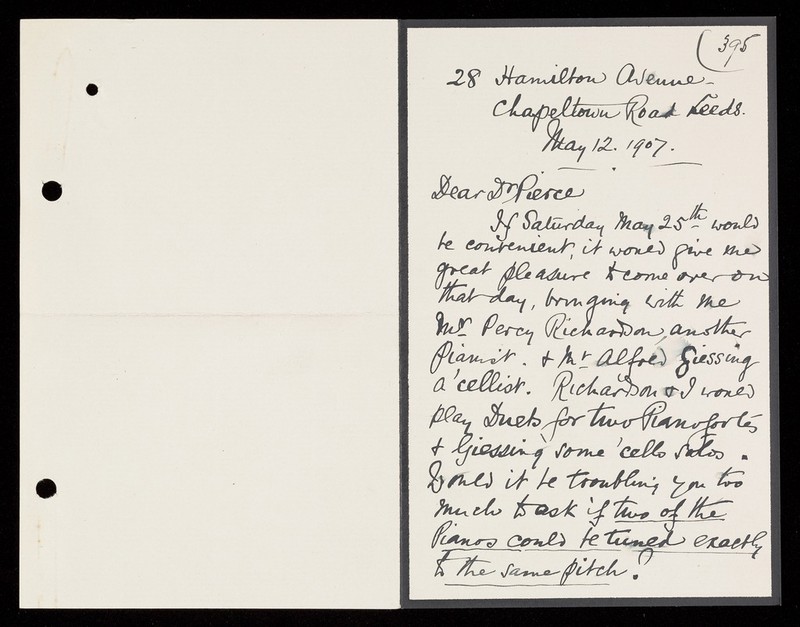 (395
28 Hamilton Avenue
Chapeltown Road Leeds.
May 12. 1907.
Dear Dr Pierce
If Saturday May 25th would
be convenient, it would give me
great pleasure to come over on
that day, bringing with me
Mr Percy Richardson, another
Pianist. & Mr Alfred Giessing
a 'cellist. Richardson & I would
play Duets for two Pianofortes
& Giessing some 'cello solos.
Would it be troubling you too
much to ask if two of the
Pianos could be tuned exactly
to the same pitch?